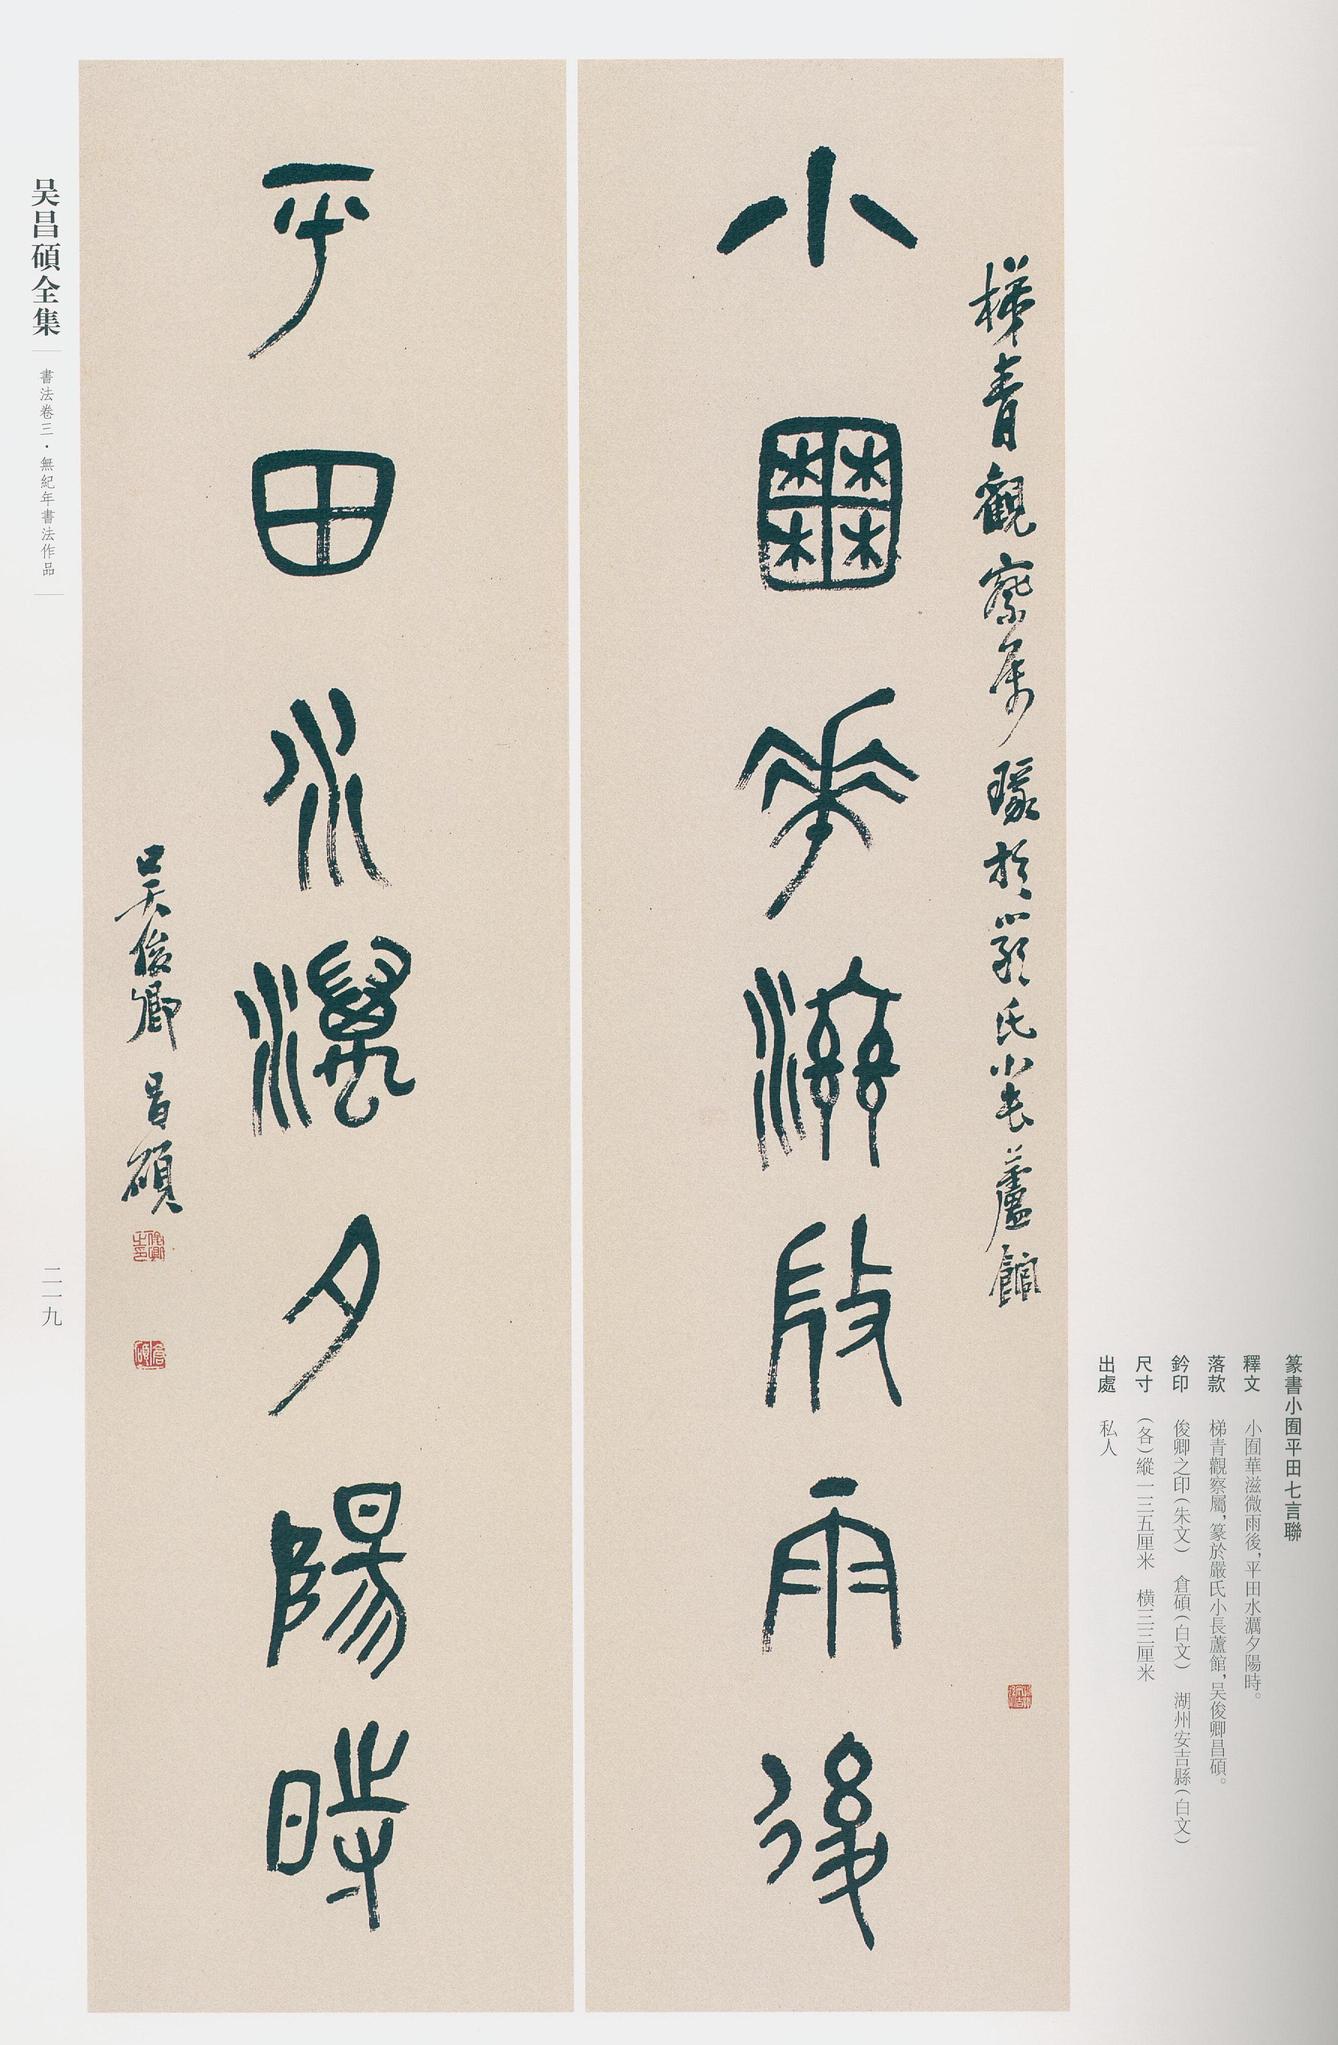 小囿華滋微雨後
梯青觀察屬篆於嚴氏小長蘆館
平田水濿夕陽時
吴俊卿昌碩
篆書小囿平田七言聯
釋文　小囿華滋微雨後，平田水濿夕陽時。
落款　梯青觀察屬，篆於嚴氏小長蘆館，吴俊卿昌碩。
鈐印　俊卿之印（朱文）　倉碩（白文）　湖州安吉縣（白文）
尺寸　（各）縱一三五厘米　橫三三厘米
出處　私人
吴昌碩全集
書法卷三·無紀年書法作品
二一九